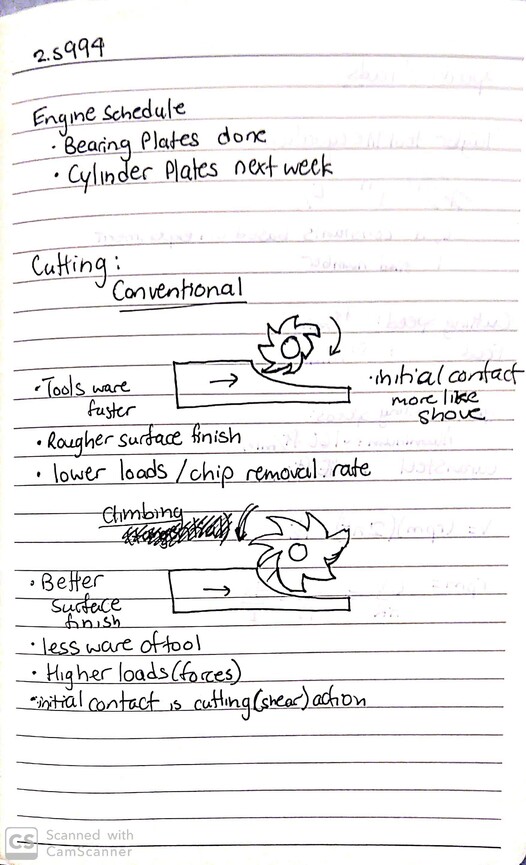 2.S994
Engine Schedule
• Bearing Plates done
• Cylinder Plates next week
Cutting:
Conventional
• Tools ware
faster
• initial contact
more like
shove
• Rougher surface finish
• lower loads/chip removal rate
Climbing
• Better
surface
finish
• less ware of tool
• Higher loads (forces)
• initial contact is cutting (shear) action
CS Scanned with
CamScanner